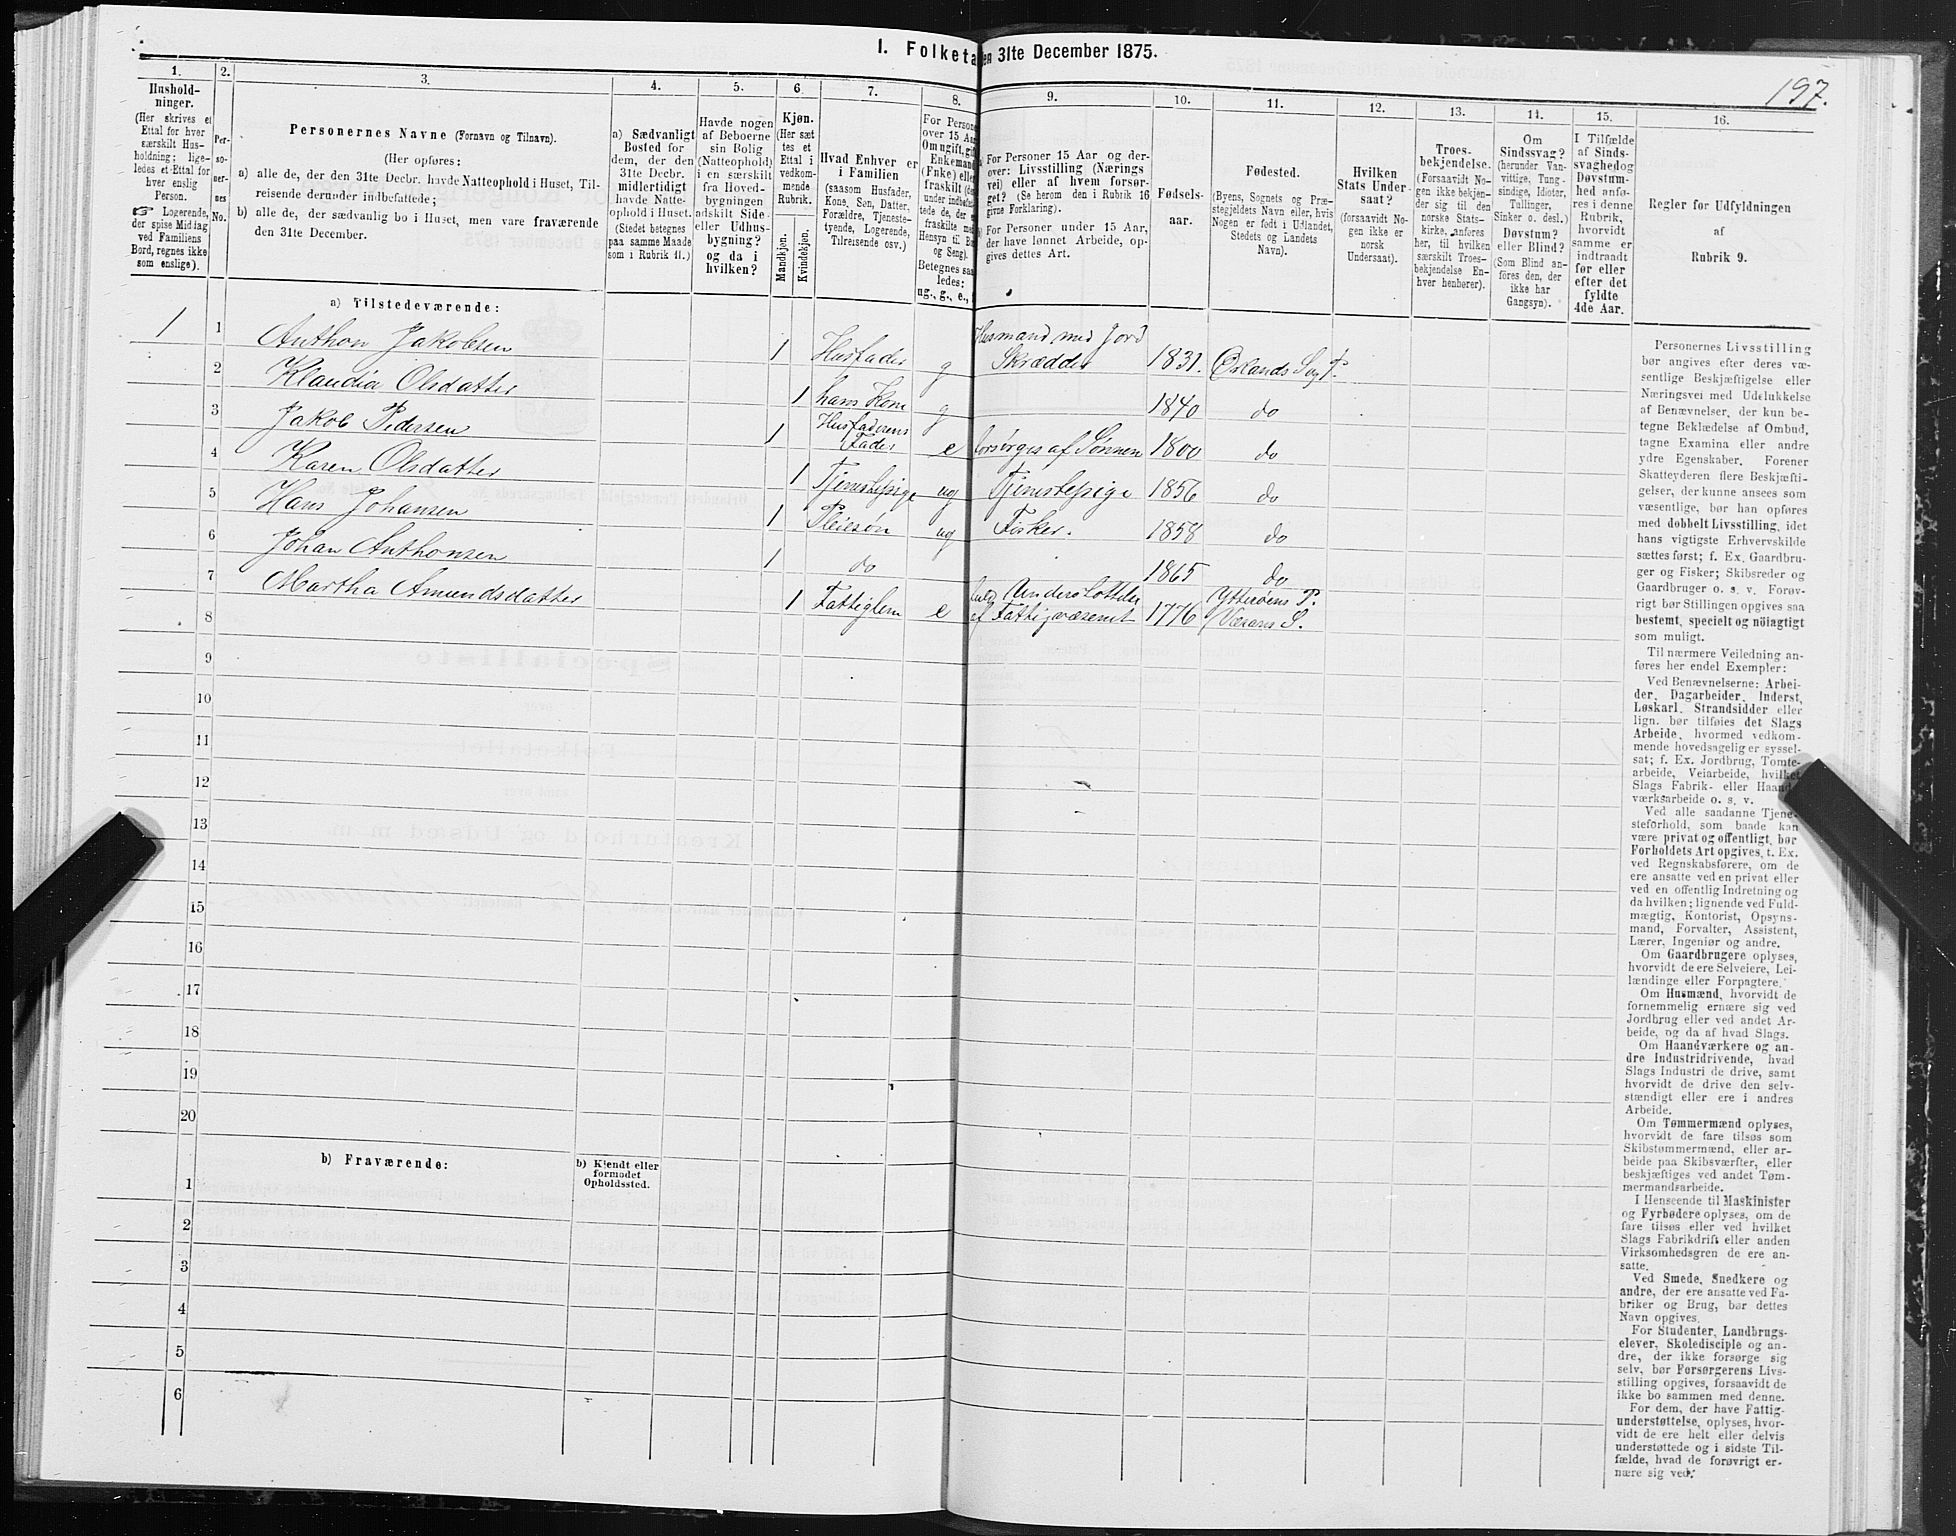 I. Folketa en 31te December 1875.
197.
1.
Hushold-
ninger.
(Her skrives et
Ettal for hver
særskilt Hus-
holdning; lige-
ledes et Ettal for
hver enslig
Person.
☞ Logerende,
der spise Middag
ved Familiens
Bord, regnes ikke
som enslige).
2.
Per-
so-
ner-
nes
No.
3.
Personernes Navne (Fornavn og Tilnavn).
(Her opføres:
a) alle de, der den 31te Decbr. havde Natteophold i Huset, Til-
reisende derunder indbefattede;
b) alle de, der sædvanlig bo i Huset, men vare fraværende
den 31te December.
4.
a) Sædvanligt
Bosted for
dem, der den
31te Decbr.
midlertidigt
havde Natte-
ophold i Huset.
(Stedet betegnes
paa samme Maade
som i Rubrik 11.)
5.
Havde nogen
af Beboerne
sin Bolig
(Natteophold)
i en særskilt
fra Hoved-
bygningen
adskilt Side-
eller Udhus-
bygning?
og da i
hvilken?
6
Kjøn.
(Her sæt
tes et
Ettal i
vedkom-
mende
Rubrik.
Mandkjøn.
Kvindekjøn.
7.
Hvad Enhver er
i Familien
(saasom Husfader,
Kone, Søn, Datter,
Forældre, Tjeneste-
tyende, Logerende,
Tilreisende osv.)
8.
For Persone
over 15 Aar
Om ugift, gift
Enkemand
(Enke) elle
fraskilt (de
under indbefat-
tede de, der e
fraskilte med
Hensyn til Bo
og Seng).
Betegnes saa
ledes:
ug., g., e.,
9.
For Personer 15 Aar og der-
over: Livsstilling (Nærings
vei) eller af hvem forsør-
get? (Se herom den i Rubrik 16
givne Forklaring).
For Personer under 15 Aar,
der have lønnet Arbeide, op-
gives dettes Art.
10.
Fødsels-
aar.
11.
Fødested.
(Byens, Sognets og Præ-
stegjeldets Navn eller, hvis
Nogen er født i Udlandet,
Stedets og Landets
Navn).
12.
Hvilken
Stats Under-
saat?
(forsaavidt No-
gen ikke er
norsk
Undersaat).
13.
Troes-
bekjendelse.
(Forsaavidt No-
gen ikke bekjen-
der sig til den
norske Stats-
kirke, anføres
her, til hvilken
særskilt Troes-
bekjendelse En-
hver henhører).
14.
Om
Sindssvag?
(herunder Van-
vittige, Tung-
sindige, Idioter,
Tullinger,
Sinker o. desl.)
Døvstum?
eller Blind?
(Som Blind an-
føres den, der
ikke har
Gangsyn).
15.
I Tilfælde
af Sinds-
svaghed og
Døvstum-
hed anfø-
res i denne
Rubrik,
hvorvidt
samme er
indtraadt
før eller
efter det
fyldte
4de Aar.
16.
Regler for Udfyldningen
af
Rubrik 9.
a) Tilstedeværende:
1 1 Anthon Jakobsen 1 Husfader g Husmand med Jord
Skrædder 1831. Ørlands S og P.
2 Klaudia Olsdatter 1 hans Kone g 1840 do
3 Jakob Pedersen 1 Husfaderens
Fader e forsørges af Sønnen 1800 do
4 Karen Olsdatter 1 Tjenestepige ug Tjenestepige 1856 do
5 Hans Johansen 1 Pleiesøn ug Fisker. 1858 do
6 Johan Anthonsen 1 do 1865 do
7 Martha Amundsdatter 1 Fattiglem e fuld Understøttelse
af Fattigvæsenet 1776 Ytterøens P.
Værans S.
8
9
10
11
12
13
14
15
16
17
18
19
20
b) Fraværende:
b) Kjendt eller
formodet
Opholdssted.
1
2
3
4
5
6
Personernes Livsstilling
bør angives efter deres væ-
sentlige Beskjæftigelse eller
Næringsvei med Udelukkelse
af Benævnelser, der kun be-
tegne Beklædelse af Ombud,
tagne Examina eller andre
ydre Egenskaber. Forener
Skatteyderen flere Beskjæfti-
gelser, der kunne ansees som
væsentlige, bør han opføres
med dobbelt Livsstilling, idet
hans vigtigste Erhvervskilde
sættes først; f. Ex. Gaardbru-
ger og Fisker; Skibsreder og
Gaardbruger o. s. v. Forøv-
rigt bør Stillingen opgives saa
bestemt, specielt og nöiagtigt
som muligt.
Til nærmere Veiledning an-
føres her endel Exempler:
Ved Benævnelserne: Arbei-
der, Dagarbeider, Inderst,
Løskarl, Strandsidder eller
lign. bør tilføies det Slags
Arbeide, hvormed vedkom-
mende hovedsagelig er syssel-
sat; f. Ex. Jordbrug, Tomte-
arbeide, Veiarbeide, hvilket
Slags Fabrik- eller Haand-
værksarbeide o. s. v.
Ved alle saadanne Tjene-
steforhold, som baade kan
være privat og offentligt, bør
Forholdets Art opgives, t. Ex.
ved Regnskabsførere, om de
ere ansatte ved en privat eller
ved en offentlig Indretning og
da hvilken; lignende ved Fuld-
mægtig, Kontorist, Opsyns-
mand, Forvalter, Assistent,
Lærer, Ingeniør og andre.
Om Gaardbrugere oplyses,
hvorvidt de ere Selveiere, Lei-
lændinge eller Forpagtere.
Om Husmænd, hvorvidt de
fornemmelig ernære sig ved
Jordbrug eller ved andet Ar-
beide, og da af hvad Slags.
Om Haandværkere og an-
dre Industridrivende, hvad
Slags Industri de drive, samt
hvorvidt de drive den selv-
stændigt eller ere i andres
Arbeide.
Om Tømmermænd oplyses,
hvorvidt de fare tilsøs som
Skibstømmermænd, eller ar-
beide paa Skibsværfter, eller
beskjæftiges ved andet Tøm-
mermandsarbeide.
I Henseende til Maskinister
og Fyrbødere oplyses, om de
fare tilsøs eller ved hvilket
Slags Fabrikdrift eller anden
Virksomhedsgren de ere an-
satte.
Ved Smede, Snedkere og
andre, der ere ansatte ved Fa-
briker og Brug, bør dettes
Navn opgives.
For Studenter, Landbrugs-
elever, Skoledisciple og an-
dre, der ikke forsørge sig
selv, bør Forsørgerens Livs-
stilling opgives, forsaavidt de
ikke bo sammen med denne.
For dem, der have Fattig-
understøttelse, oplyses, hvor-
vidt de ere helt eller delvis
understøttede og i sidste Til-
fælde, hvad de forøvrigt er-
nære sig ved.